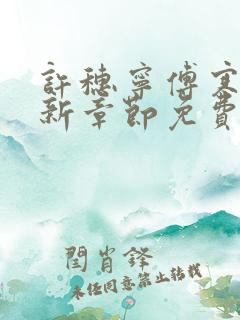 許穗寧傅寒
新章節免費
閆肖鋒
未经同意禁止转载